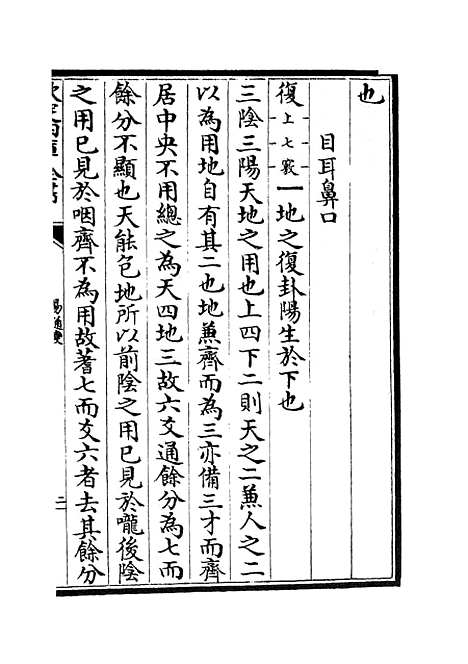 也
目耳鼻口
復上七竅一地之復卦陽生於下也
三陰三陽天地之用也上四下二則天之二兼人之二
以為用地自有其二也地兼齊而為三亦備三才而齊
居中央不用總之為天四地三故六爻通餘分為七而
餘分不顯也天能包地所以前陰之用已見於嚨後陰
之用已見於咽齊不為用故蓍七而爻六者去其餘分
易通變
二